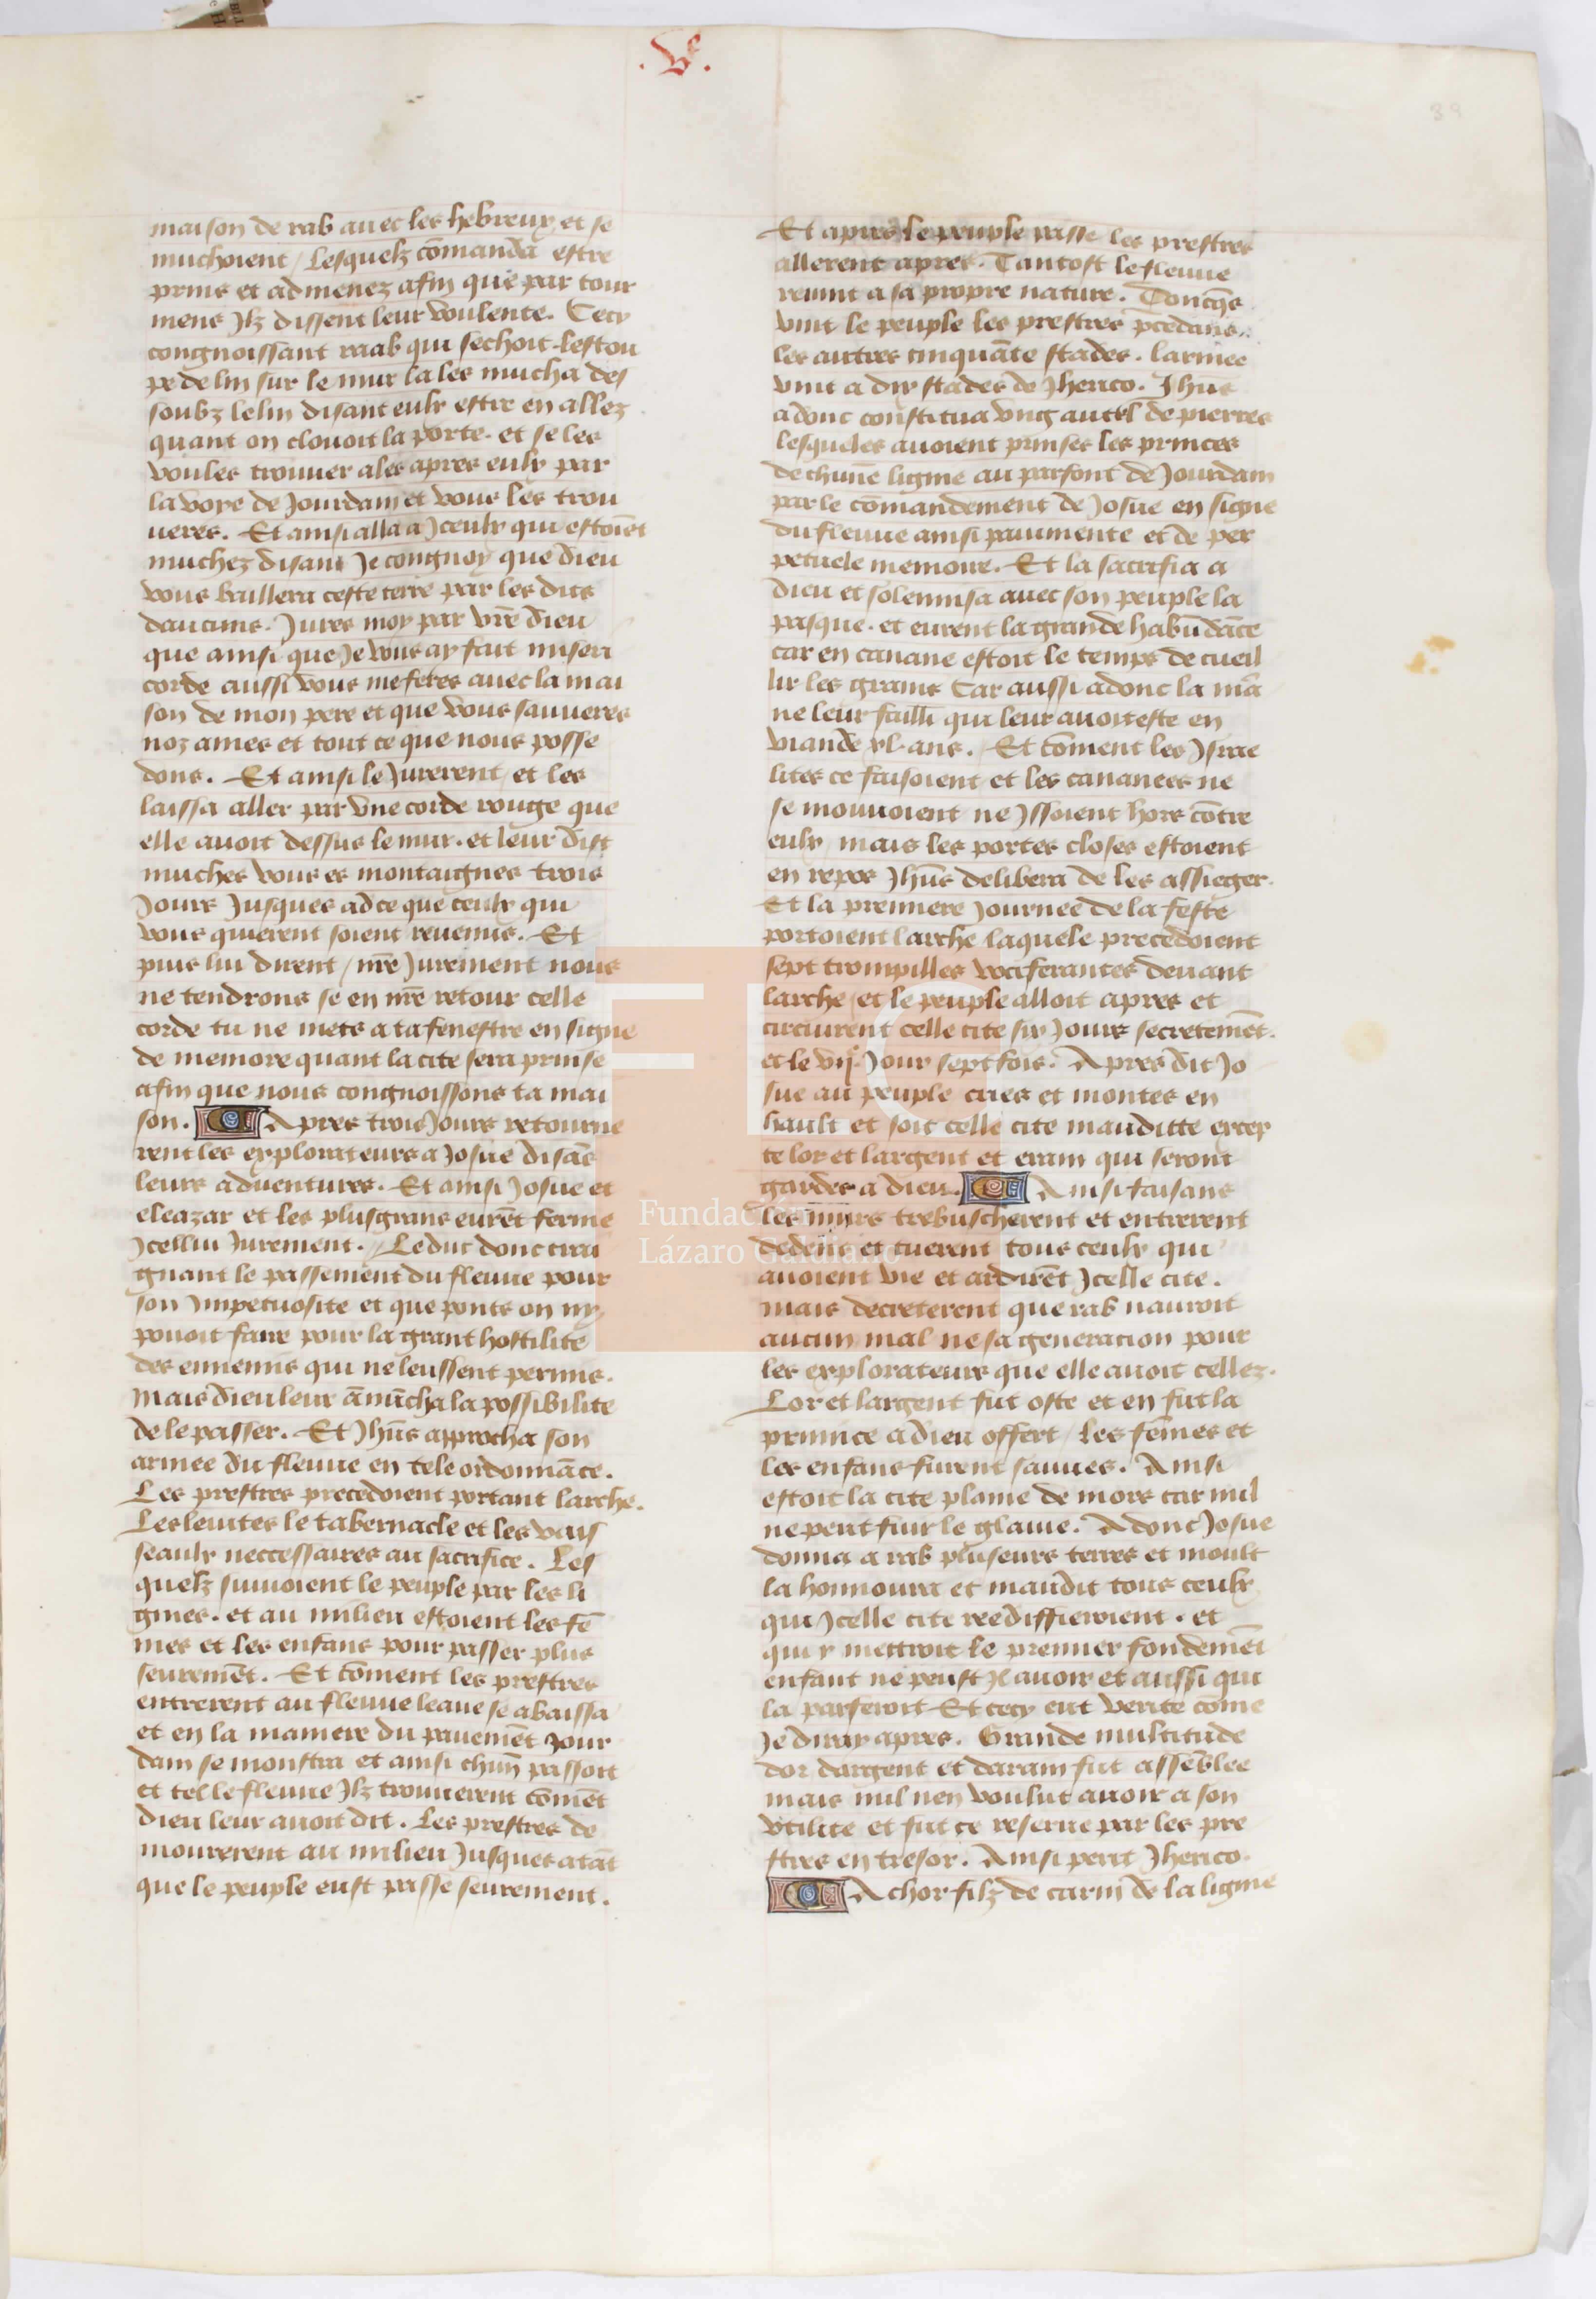 .Ve.
39
maison de rab auec les hebreux et se
muchoient / Lesquelz cōmanda estre
prins et admenez afin que par tour
mens Jlz dissent leur voulente. Cecy
congnoissant raab qui sechoit lestou
pe de lin sur le mur la les mucha des
soubz le lin disant eulx estre en allez
quant on clouoit la porte. et se les
voules trouuer ales apres eulx par
la voye de Jourdain et vous les trou
ueres. Et ainsi alla a Jceulx qui estoiēt
muchez disant Je congnoy que dieu
vous baillera ceste terre par les dits
daucuns. Jures moy par vr̄e dieu
que ainsi que Je vous ay fait miseri
corde aussi vous me feres auec la mai
son de mon pere et que vous sauueres
noz ames et tout ce que nous posse
dons. Et ainsi le Jurerent / et les
laissa aller par vne corde rouge que
elle auoit dessus le mur. et leur dist
muches vous es montaignes trois
Jours Jusques ad ce que ceulx qui
vous quierent soient reuenus. Et
puis lui dirent / nr̄e Jurement nous
ne tendrons se en nr̄e retour celle
corde tu ne mets a ta fenestre en signe
de memore quant la cite sera prinse
afin que nous congnoissons ta mai
son. Apres trois Jours retourne
rent les explorateurs a Josue disās
leurs aduentures. Et ainsi Josue et
eleazar et les plusgrans eurēt ferme
Jcellui Jurement. // Le duc donc crai
gnant le passement du fleuue pour
son Jmpetuosite et que ponts on ny
pouoit faire pour la grant hostilite
des ennemis qui ne leussent permis.
Mais dieu leur ānūcha la possibilite
de le passer. Et Jhūs approcha son
armee du fleuue en tele ordonnāce.
Les prestres precedoient portant larche.
Les leuites le tabernacle et les vais
seaulx neccessaires au sacrifice. Les
quelz suiuoient le peuple par les li
gnies. et au milieu estoient les fē
mes et les enfans pour passer plus
seuremēt. Et cōment les prestres
entrerent au fleuue leaue se abaissa
et en la maniere du pauemēt Jour
dain se monstra et ainsi chūn passoit
et tel le fleuue Jlz trouuerent cōmēt
dieu leur auoit dit. Les prestres de
mourerent au milieu Jusques atāt
que le peuple eust passe seurement.
Et apres le peuple passe les prestres
allerent apres. Tantost le fleuue
reuint a sa propre nature. Doncqs
vint le peuple les prestres p̄cedans
les autres cinquāte stades. larmee
vint a dix stades de Jherico. Jhūs
adonc constitua vng autel de pierres
lesqueles auoient prinses les princes
de chūne lignie au parfont de Jourdain
par le cōmandement de Josue en signe
du fleuue ainsi pauimente et de per
petuele memoire. Et la sacrifia a
dieu et solemnisa auec son peuple la
pasque. et eurent la grande habūdāce
car en canane estoit le temps de cueil
lir les grains Car aussi adonc la mā
ne leur failli qui leur auoit este en
viande xl. ans. Et cōment les Jsrae
lites ce faisoient et les cananees ne
se mouuoient ne Jssoient hors cōtre
eulx / mais les portes closes estoient
en repos Jhūs delibera de les assieger.
Et la premiere Journee de la feste
portoient larche laquele precedoient
sept trompilles vociferantes deuant
larche / et le peuple alloit apres et
circuirent celle cite six Jours secretemēt.
et le vij.e Jour sept fois. Apres dit Jo
sue au peuple cries et montes en
hault et soit celle cite mauditte excep
te lor et largent et eram qui seront
gardes a dieu. Ainsi faisans
les murs trebuscherent et entrerent
dedēs et tuerent tous ceulx qui
auoient vie et ardirēt Jcelle cite.
mais decreterent que rab nauroit
aucun mal ne sa generacion pour
les explorateurs que elle auoit cellez.
Lor et largent fut oste et en fut la
primice a dieu offert / les fēmes et
les enfans furent sauues. Ainsi
estoit la cite plaine de mors car nul
ne peut fuir le glaiue. Adonc Josue
donna a rab pluseurs terres et moult
la honnoura et maudit tous ceulx
qui Jcelle cite reedifficeroient. et
qui y mettroit le premier fondemēt
enfant ne peust Jl auoir et aussi qui
la parferoit Et cecy eut verite cōme
Je diray apres. Grande multitude
dor dargent et daram fut assēblee
mais nul nen voulut auoir a son
vtilite et fut ce reserue par les pre
stres en tresor. Ainsi perit Jherico.
Achor filz de carmi de la lignie
Fundación
Lázaro Galdiano